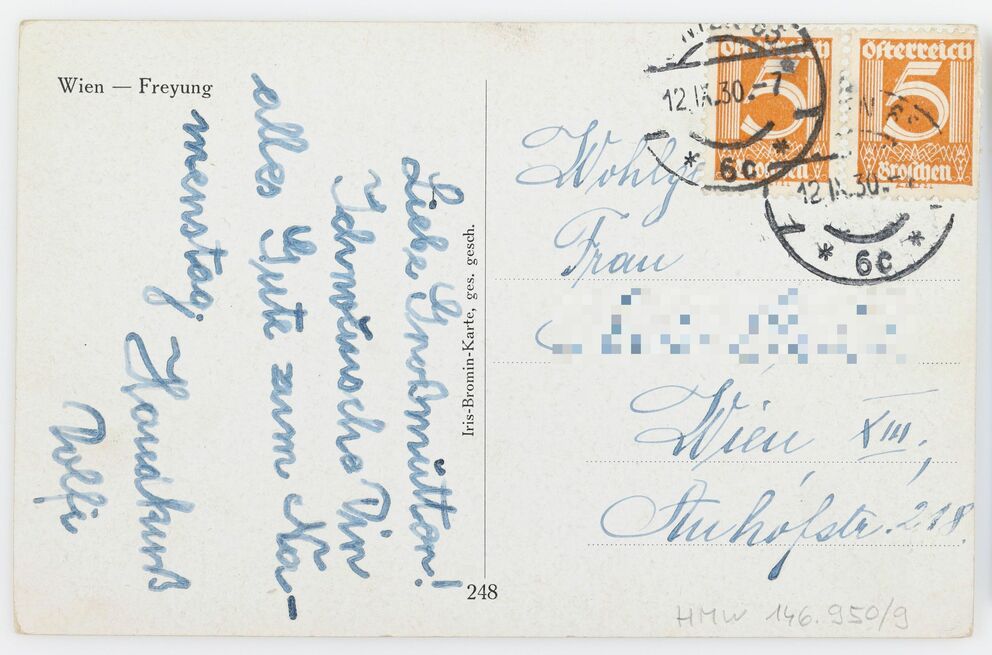 Wien — Freyung
Liebe Großmutter!
Ich wünsche Dir
alles Gute zum Na-
menstag
Handkuß
Rolfi
Iris-Bromin-Karte, ges. gesch.
248
WIEN 63
12.IX.30.-7
* 6c *
Österreich
5
Groschen
Österreich
5
Groschen
12.IX.30.-7
* 6c *
Frau
Wien XIII.,
Auhofstr. 218.
HMW 146.950/9